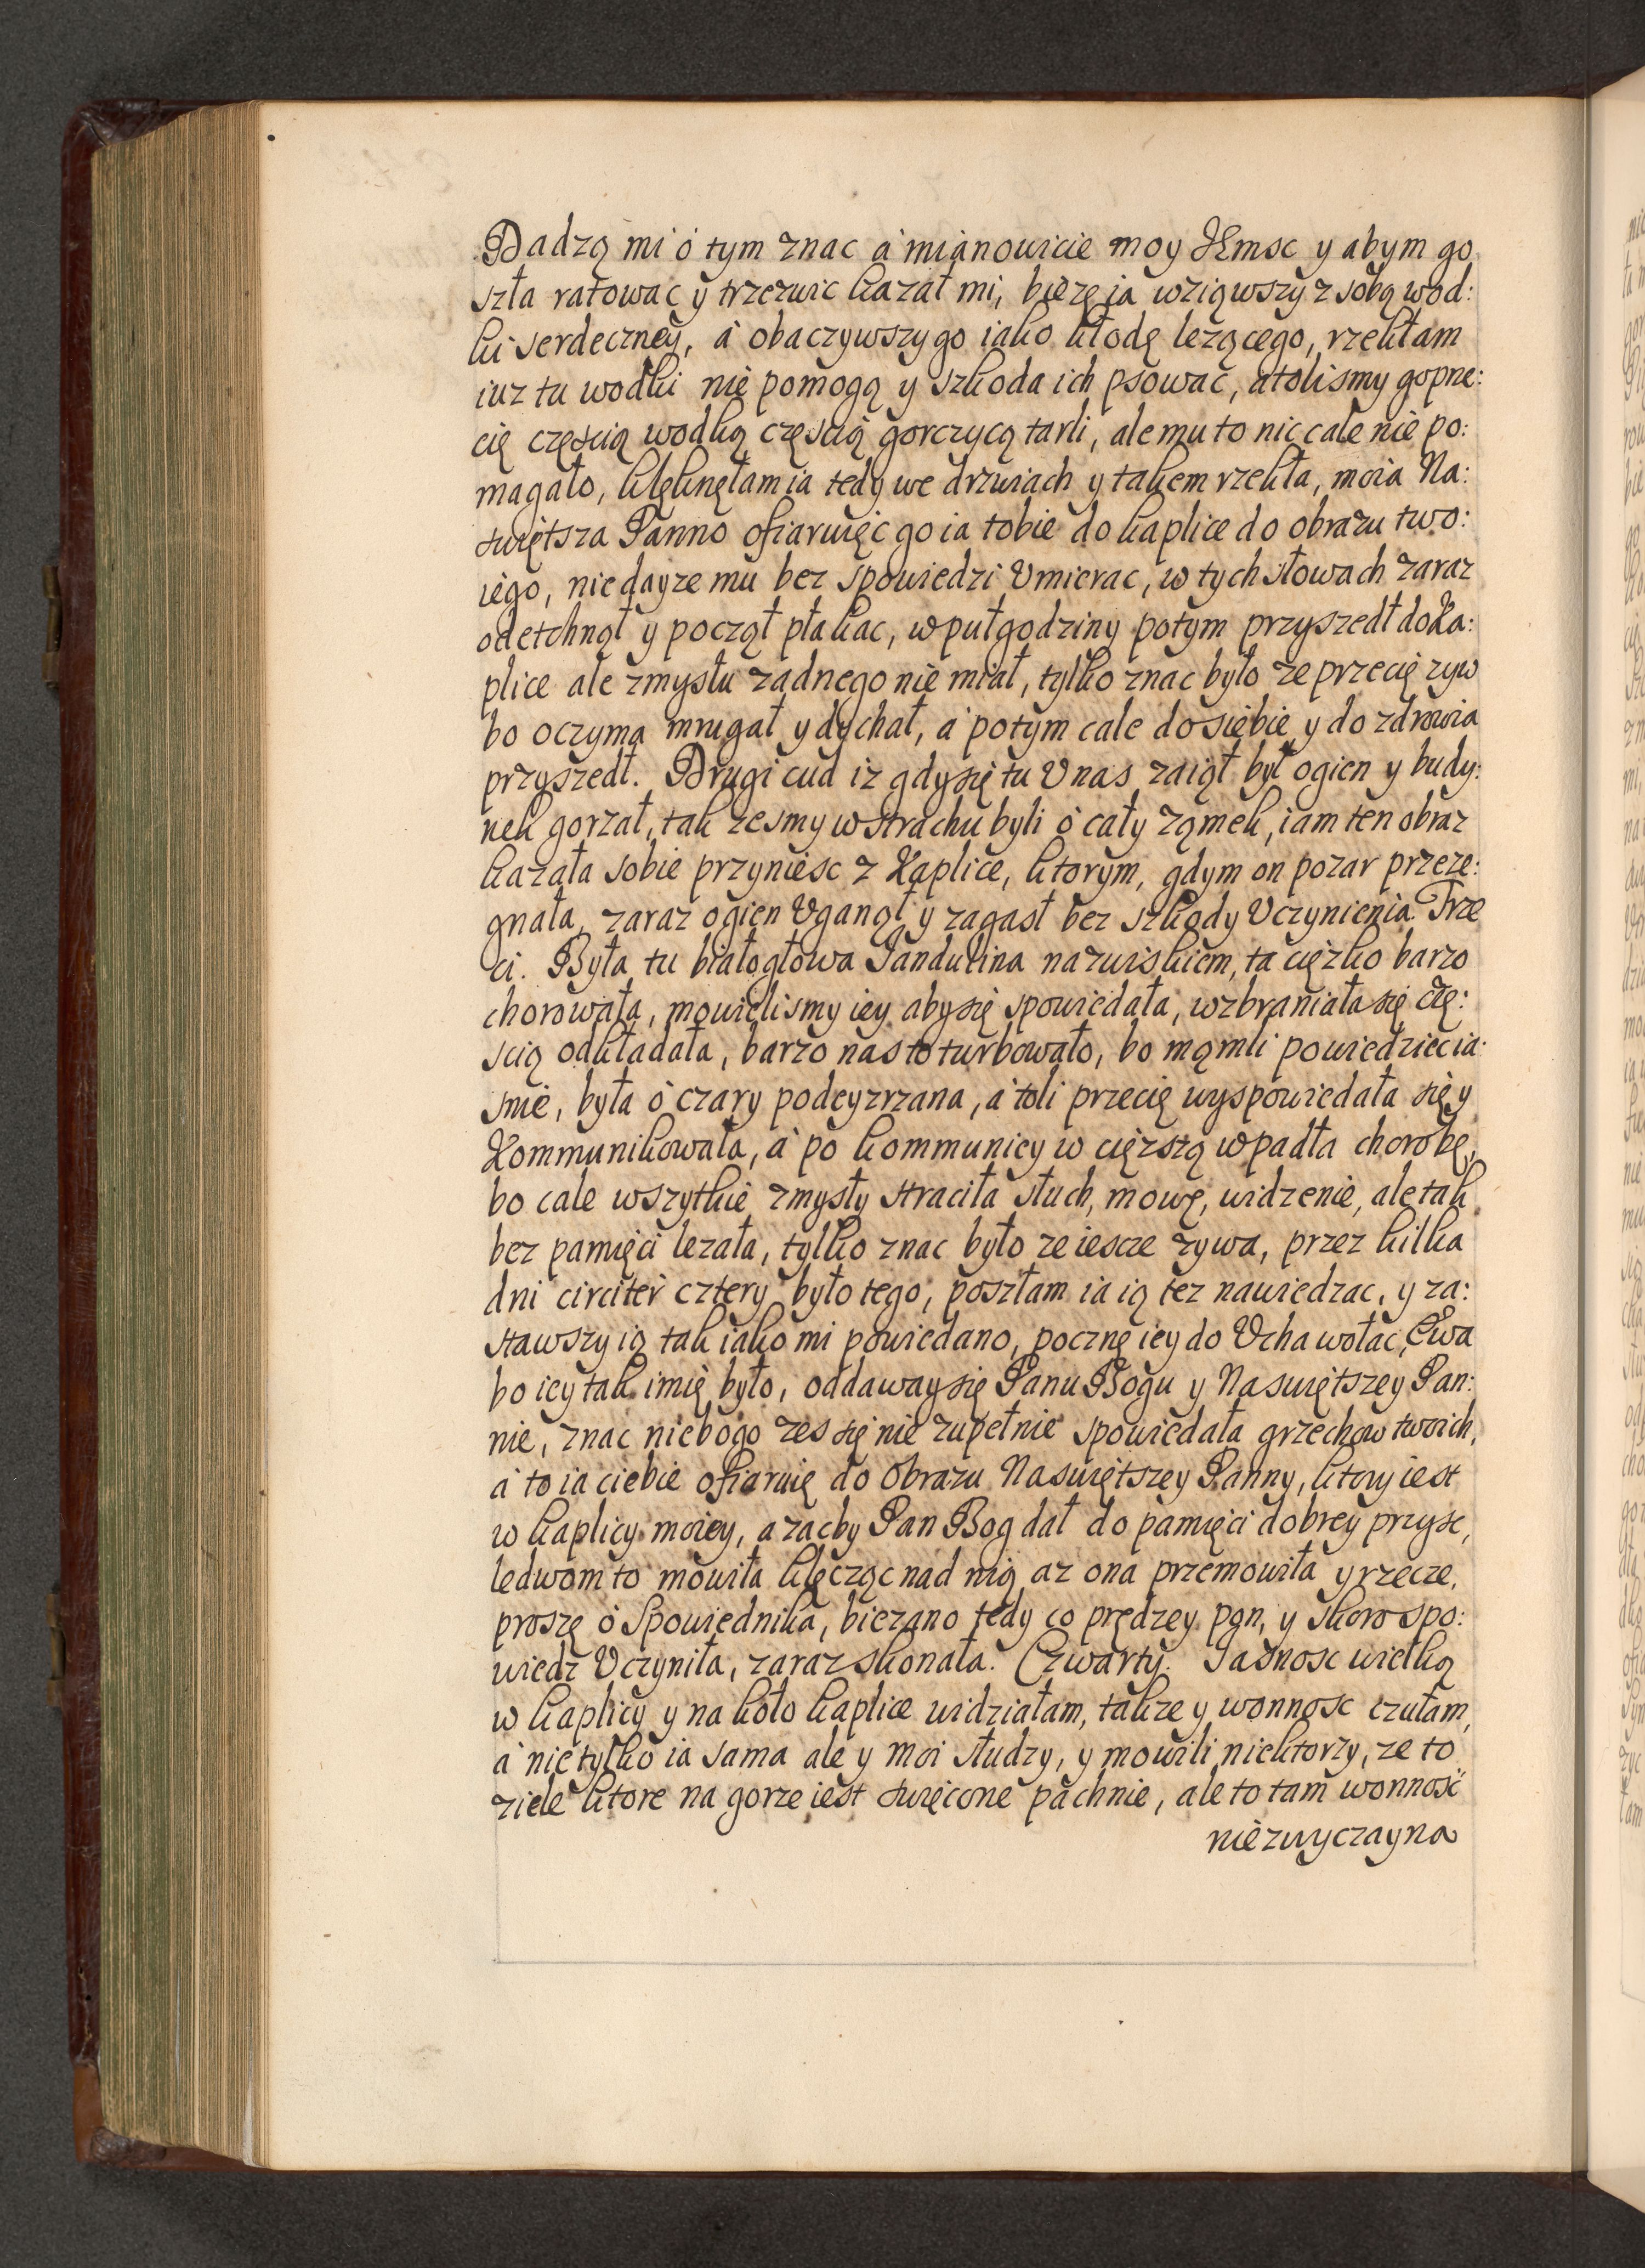 Dadzą mi ó tym znac á mianowicie moy JEmsc y abym go
szła ratowac y trzezwic kazał mi, biezę ia wziąwszy z sobą wod:
ki serdeczney, á obaczywszy go iako kłodę lezącego, rzekłam
iuz tu wodki nie pomogą y szkoda ich psowac, atolismy go pne:
cię częscią wodką częscią gorczycą tarli, ale mu to nic cale nie po:
magało, klęknęłam ia tedy we drzwiach y takem rzekła, moia Na:
swiętsza Panno ofiaruięc go ia tobie do kaplice do obrazu two:
iego, nie dayze mu bez spowiedzi Umierac, w tych słowach zaraz
odetchnął y począł płakac, w puł godziny potym przyszedł do Ka:
plice ale zmysłu zadnego nie miał, tylko znac było ze przecię zyw
bo oczyma mrugał y dychał, á potym cale do siebie y do zdrowia
przyszedł. Drugi cud iz gdy się tu U nas zaiął był ogien y budy:
nek gorzał, tak zesmy w strachu byli ó cały Zamek, iam ten obraz
kazała sobie przyniesc z Kaplice, ktorym, gdym on pozar przeze:
gnała, zaraz ogien Uganął y zagasł bez szkody Uczynienia. Trze
ci. Była tu białogłowa Jandulina nazwiskiem, ta cięzko barzo
chorowała, mowielismy iey aby się spowiedała, wzbraniała się czę:
scią odkładała, barzo nas to turbowało, bo mąmli powiedziec ia:
snie, była ó czary podeyzrzana, á toli przecię wyspowiedała się y
Kommunikowała, á po kommunicy w cięzszą wpadła chorobę,
bo cale wszytkie zmysły straciła słuch, mowę, widzenie, ale tak
bez pamięci lezała, tylko znac było ze iescze zywa, przez kilka
dni circiter cztery było tego, poszłam ia ią tez nawiedzac, y za:
stawszy ią tak iako mi powiedano, pocznę iey do Ucha wołac, Ewa
bo iey tak imię było, oddaway się Panu Bogu y Naswiętszey Pan:
nie, znac niebogo zes się nie zupełnie spowiedała grzechow twoich,
á to ia ciebie ofiaruię do Obrazu Naswiętszey Panny, ktory iest
w kaplicy moiey, azacby Pan Bog dał do pamięci dobrey przysc,
ledwom to mowiła klęcząc nad nią, az ona przemowiła y rzecze,
proszę ó Spowiednika, biezano tedy co prędzey pon, y skoro spo:
wiedz Uczyniła, zaraz skonała. Czwarty. Jasnosc wielką
w kaplicy y na koło kaplice widziałam, takze y wonnosc czułam,
á nie tylko ia sama ale y moi słudzy, y mowili niektorzy, ze to
ziele ktore na gorze iest swięcone pachnie, ale to tam wonnosc
niezwyczayna